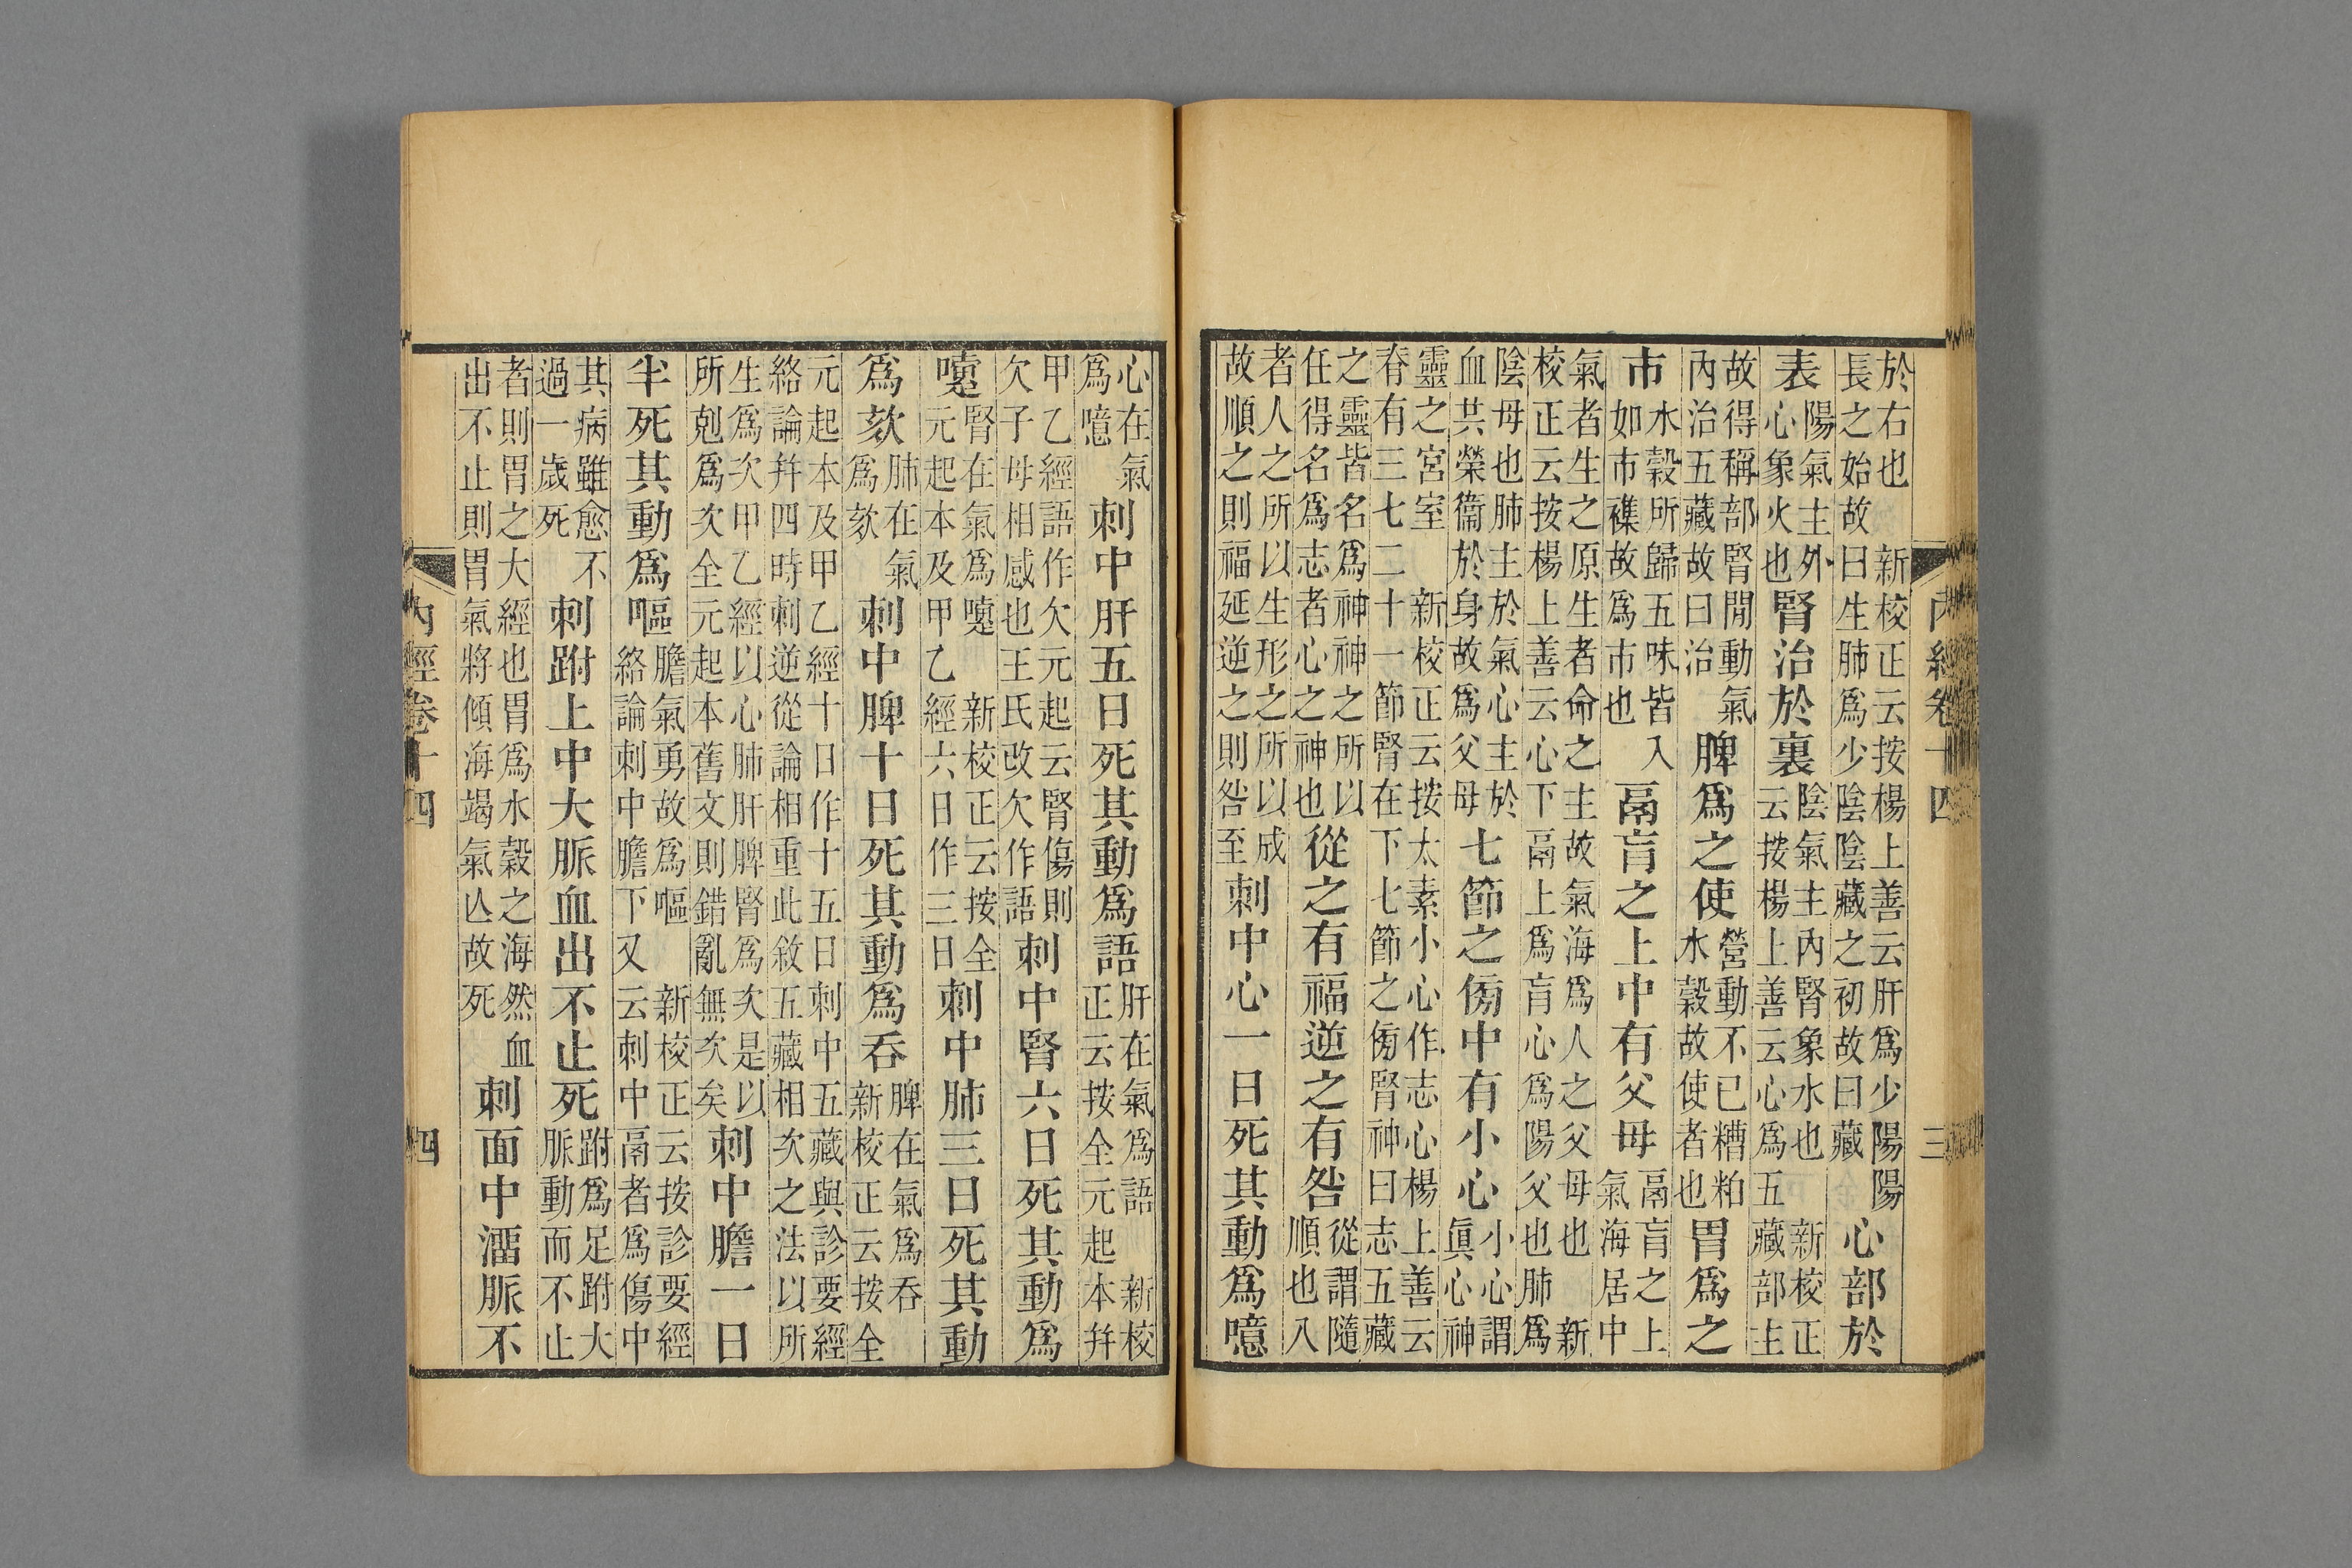 內經卷十四 三
於右也 新校正云按楊上善云肝爲少陽陽
長之始故曰生肺爲少陰陰藏之初故曰藏
心部於
表
陽氣主外
心象火也
腎治於裏
陰氣主內腎象水也 新校正
云按楊上善云心爲五藏部主
故得稱部腎閒動氣
內治五藏故曰治
脾爲之使
營動不已糟粕
水穀故使者也
胃爲之
市
水穀所歸五味皆入
如市襍故爲市也
鬲肓之上中有父母
鬲肓之上
氣海居中
氣者生之原生者命之主故氣海爲人之父母也 新
校正云按楊上善云心下鬲上爲肓心爲陽父也肺爲
陰母也肺主於氣心主於
血共榮衞於身故爲父母
七節之傍中有小心
小心謂
眞心神
靈之宮室 新校正云按太素小心作志心楊上善云
脊有三七二十一節腎在下七節之傍腎神曰志五藏
之靈皆名爲神神之所以
任得名爲志者心之神也
從之有福逆之有咎
從謂隨
順也八
者人之所以生形之所以成
故順之則福延逆之則咎至
刺中心一日死其動爲噫
心在氣
爲噫
刺中肝五日死其動爲語
肝在氣爲語 新校
正云按全元起本幷
甲乙經語作欠元起云腎傷則
欠子母相感也王氏改欠作語
刺中腎六日死其動爲
嚏
腎在氣爲嚏 新校正云按全
元起本及甲乙經六日作三日
刺中肺三日死其動
爲欬
肺在氣
爲欬
刺中脾十日死其動爲吞
脾在氣爲吞
新校正云按全
元起本及甲乙經十日作十五日刺中五藏與診要經
絡論幷四時刺逆從論相重此敘五藏相次之法以所
生爲次甲乙經以心肺肝脾腎爲次是以
所剋爲次全元起本舊文則錯亂無次矣
刺中膽一日
半死其動爲嘔
膽氣勇故爲嘔 新校正云按診要經
絡論刺中膽下又云刺中鬲者爲傷中
其病雖愈不
過一歲死
刺跗上中大脈血出不止死
跗爲足跗大
脈動而不止
者則胃之大經也胃爲水穀之海然血
出不止則胃氣將傾海竭氣亾故死
刺面中溜脈不
內經卷十四 四